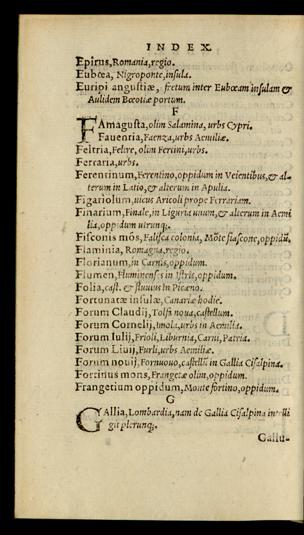 INDEX.
Epirus, Romania, regio.
Eubœa, Nigroponte, insula.
Euripi angustiæ, fretum inter Eubœam insulam &
Aulidem Bœotiæ portum.
F
FAmagusta, olim Salamina, urbs Cypri.
Faventia, Faenza, urbs Aemiliæ.
Feltria, Feltre, olim Fertini, urbs.
Ferraria, urbs.
Ferentinum, Ferentino, oppidum in Veientibus, & al-
terum in Latio, & alterum in Apulia.
Figariolum, uicus Aricoli prope Ferrariam.
Finarium, Finale, in Liguria unum, & alterum in Aemi
lia, oppidum utrunq;.
Fisconis mõs, Falisca colonia, Mõte fiascone, oppidũ.
Flaminia, Romagna, regio.
Florianum, in Carnis, oppidum.
Flumen, Fluminenses in Istris, oppidum.
Folia, cast. & fluuius in Piceno.
Fortunatæ insulæ, Canariæ hodie.
Forum Claudij, Tolfa noua, castellum.
Forum Cornelij, Imola, urbs in Aemilia.
Forum Iulij, Frioli, Liburnia, Carni, Patria.
Forum Liuij, Furli, urbs Aemiliæ.
Forum nouij, Fornuouo, castellũ in Gallia Cisalpina.
Fortinus mons, Frangetæ olim, oppidum.
Frangetium oppidum, Monte fortino, oppidum.
G
GAllia, Lombardia, nam de Gallia Cisalpina intelli
git plerunq;.
Gallu-